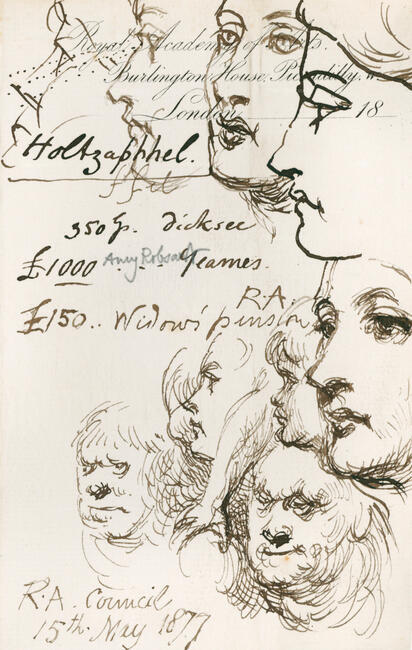 Royal Academy of Arts.
Burlington House, Piccadilly, W.
London 18
Holtzaphhel.
350 gs. Dicksee
£1000 Amy Robsart Yeames.
R.A.
£150.. Widow's pension
R.A. Council
15th May 1877